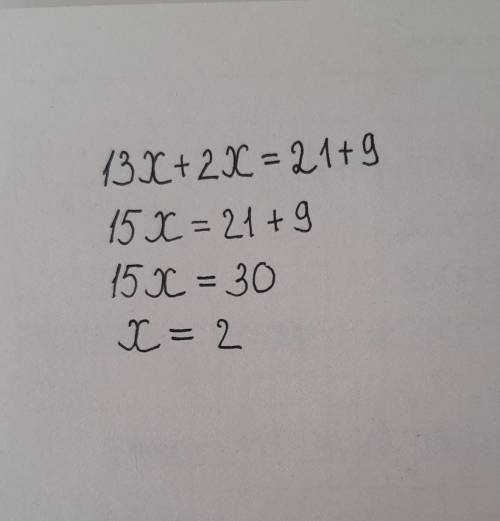 13x+2x=21+9
15x=21+9
15x=30
x=2